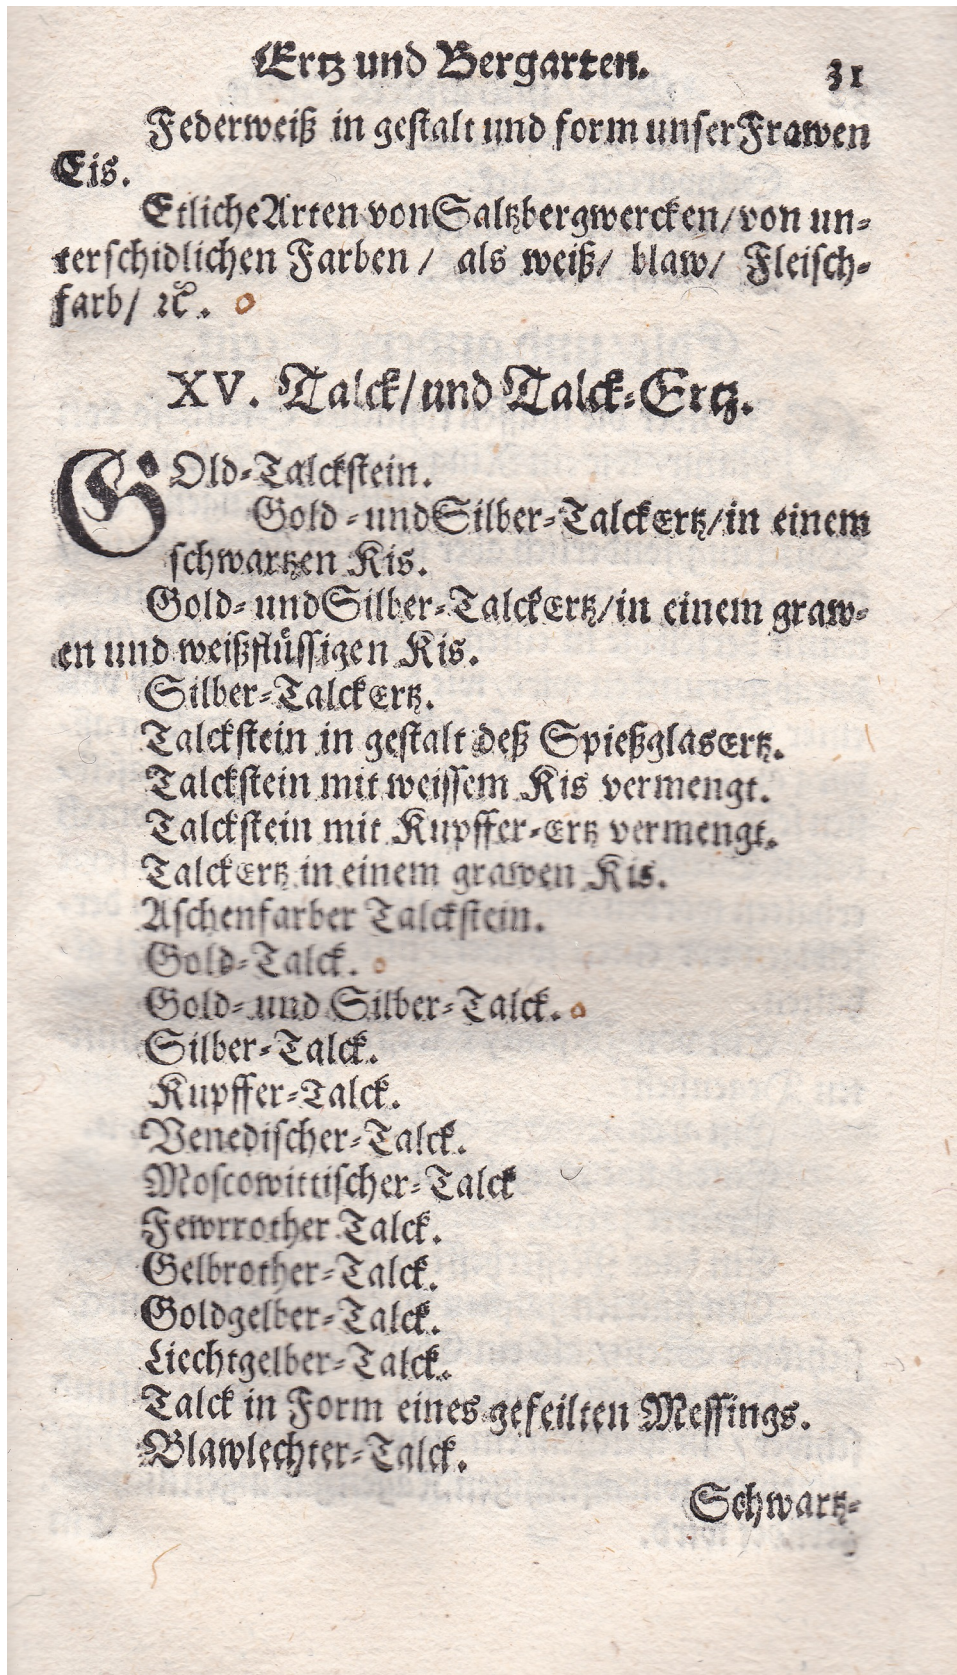 Ertz und Bergarten. 31
Federweiß in geſtalt und form unſer Frawen
Eis.
Etliche Arten von Saltzbergwercken/ von un-
terſchidlichen Farben/ als weiß/ blaw/ Fleiſch-
farb/ ꝛc̃.
XV. Talck/ und Talck-Ertz.
GOld-Talckſtein.
Gold- und Silber-TalckErtz/ in einem
ſchwartzen Kis.
Gold- und Silber-TalckErtz/ in einem graw-
en und weißflüſſigen Kis.
Silber-TalckErtz.
Talckſtein in geſtalt deß SpießglasErtz.
Talckſtein mit weiſſem Kis vermengt.
Talckſtein mit Kupffer-Ertz vermengt.
TalckErtz in einem grawen Kis.
Aſchenfarber Talckſtein.
Gold-Talck.
Gold- und Silber-Talck.
Silber-Talck.
Kupffer-Talck.
Venediſcher-Talck.
Moſcowittiſcher-Talck
Fewrrother Talck.
Gelbrother-Talck.
Goldgelber-Talck.
Liechtgelber-Talck.
Talck in Form eines gefeilten Meſſings.
Blawlechter-Talck.
Schwartz-